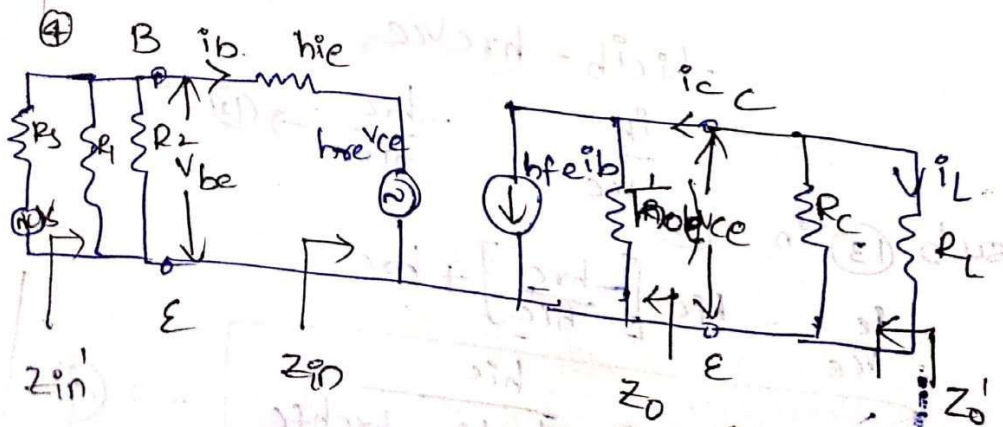 ④
B ib hie
Rs R1 R2 Vbe hre Vce
Vs
ic C
hfe ib 1/hoe Vce RC iL RL
E E
Zin' Zin Zo Zo'